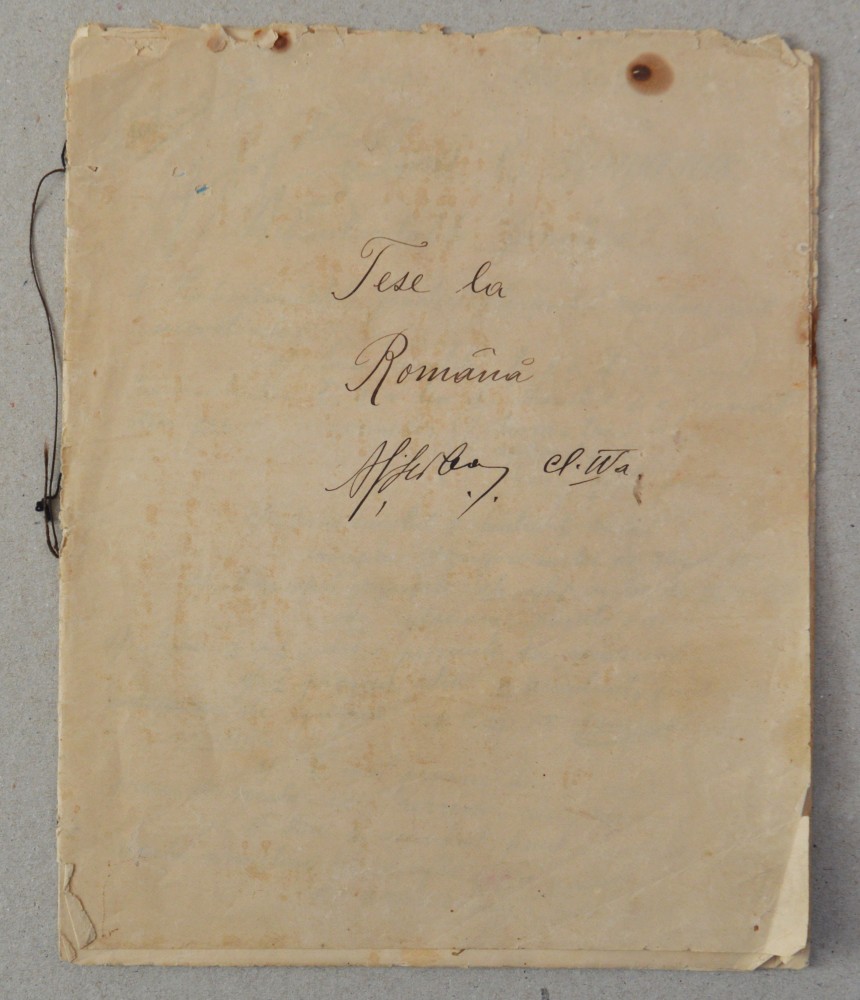 Tese la
Română
cl. IVa.